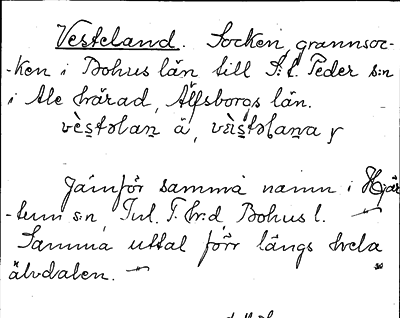 Vesteland. Socken, grannsoc-
-ken i Bohus län till S:t. Peder s:n
i Ale härad, Älfsborgs län.
vèstəlan ä, vèistəlana y
Jämför samma namn i Hjär-
-tum s:n, Inl. T. hr:d, Bohus l.
Samma uttal förr längs hela
älvdalen.